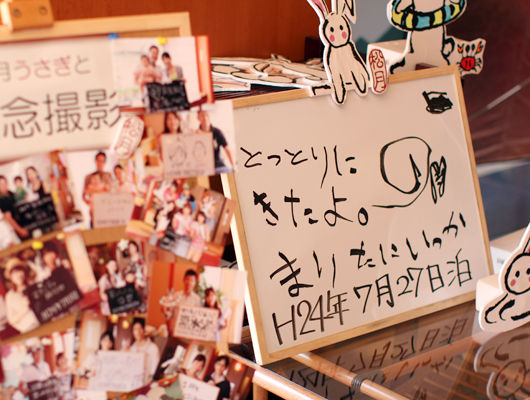 月うさぎと
念撮影
松月
とっとりに
きたよ。
まりたにいっか
H24年7月27日泊